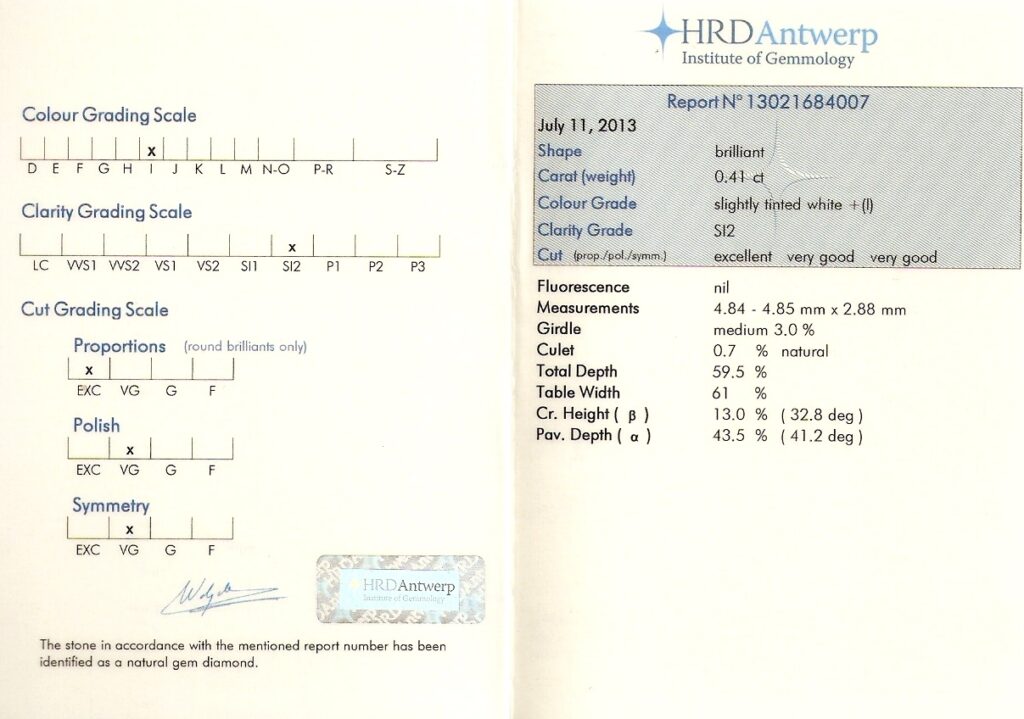 Colour Grading Scale
x
D E F G H I J K L M N-O P-R S-Z
Clarity Grading Scale
x
LC VVS1 VVS2 VS1 VS2 SI1 SI2 P1 P2 P3
Cut Grading Scale
Proportions (round brilliants only)
x
EXC VG G F
Polish
x
EXC VG G F
Symmetry
x
EXC VG G F
HRD Antwerp
Institute of Gemmology
The stone in accordance with the mentioned report number has been
identified as a natural gem diamond.
HRD Antwerp
Institute of Gemmology
Report N° 13021684007
July 11, 2013
Shape brilliant
Carat (weight) 0.41 ct
Colour Grade slightly tinted white +(I)
Clarity Grade SI2
Cut (prop./pol./symm.) excellent very good very good
Fluorescence nil
Measurements 4.84 - 4.85 mm x 2.88 mm
Girdle medium 3.0 %
Culet 0.7 % natural
Total Depth 59.5 %
Table Width 61 %
Cr. Height ( β ) 13.0 % ( 32.8 deg )
Pav. Depth ( α ) 43.5 % ( 41.2 deg )